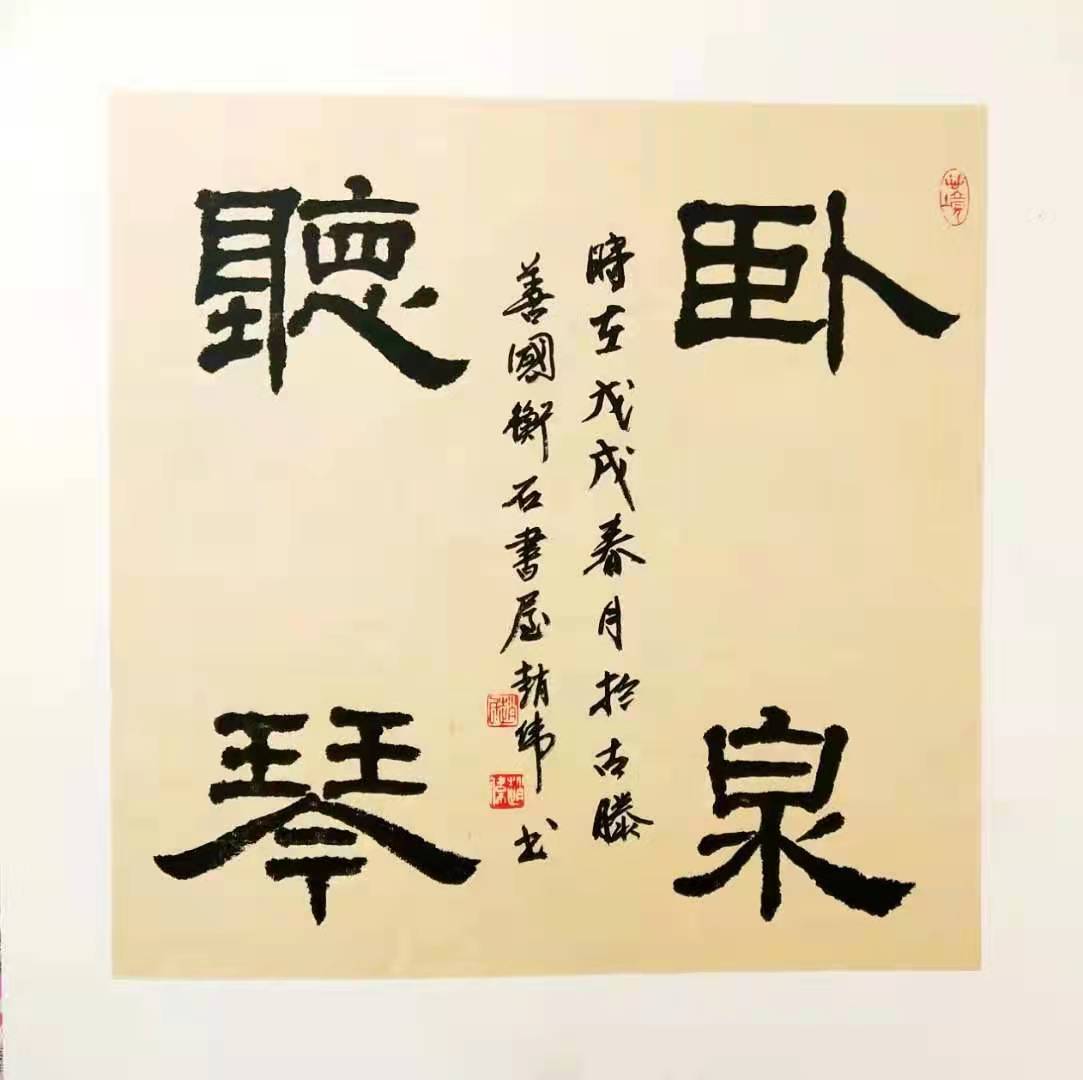 卧泉
聽琴
時在戊戌春月於古滕
善國衡石書屋趙偉書